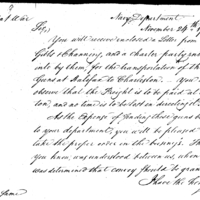 Navy Department
November 24th
Sir,
You will receive enclosed a Letter from
Gibbs & Channing, and a charter party
into by them, for the transportation of the
Guns at Halifax to Charleston. You
observe that the Freight is to be paid at
ton, and no time is to be lost in directing
As the Expense of sending these guns
to your department, you will be pleased
take the proper order in the business.
You know, was understood between us, when
was determined that convoy should be gran
I have the Ho